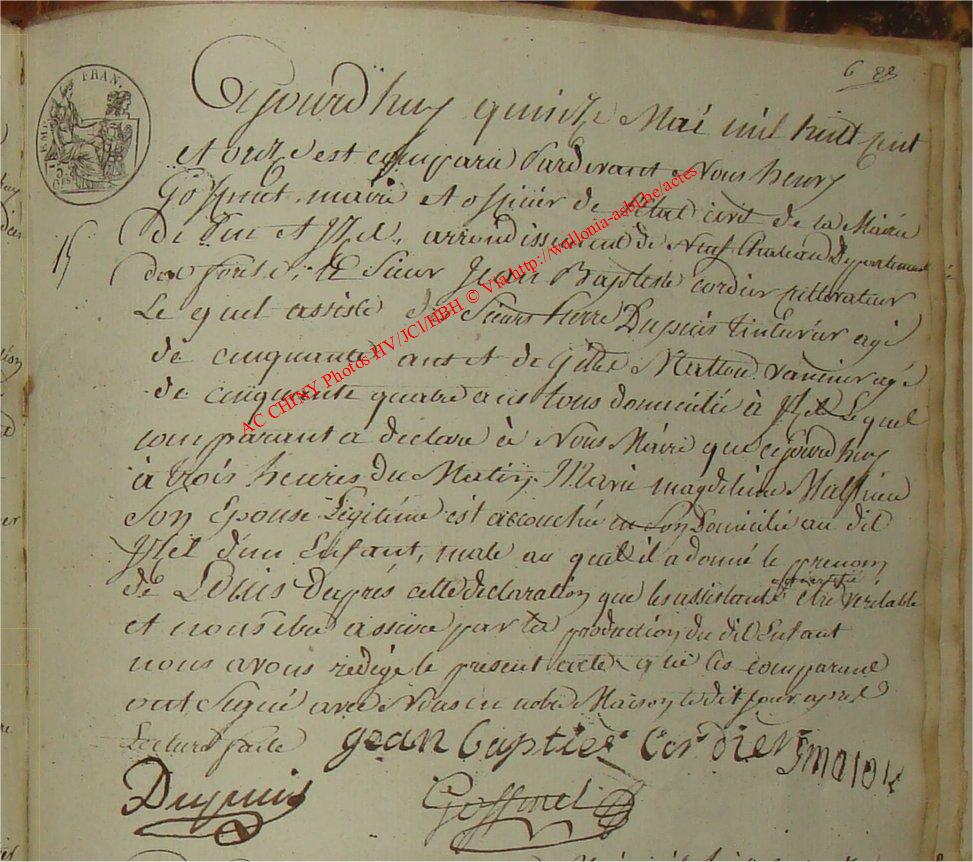 6 23
EMP. FRAN.
Cejourd huy quinze Mai mil huit cent
et onze est comparu Pardevant Nous henry
Gofsinet, maire et officier de l'Etat civil de la Mairie
15
de Suc et Izel, arrondissement de Neufchateau Departement
des forets, le Sieur Jean Baptiste cordier
Le quel assisté de Sieurs Pierre Dupuis tinturier agé
de cinquante ans et de Gilles vannier agé
de cinquante quatre ans tous domicilié à Izel Lequel
comparant a declaré à Nous Maire que cejourd huy
à trois heures du Matin Marie magdeleine Mathieu
Son Epouse Legitime est accouchée en Son Domicilie au dit
Izel d'un Enfant, male au quel il a donné le prenom
de Louis Duprés cette declaration que les assistants ont certifié être veritable
et nous etre assuré par la production du dit Enfant
nous avons redigé le present acte que les comparant
ont signé avec Nous en notre Maison le dit jour apres
Lecture faite Jean baptiste Cordier
Dupuis Gofsinet
AC CHINY Photos HV/JCl/HBH © Via http://wallonia-asbl.be/actes